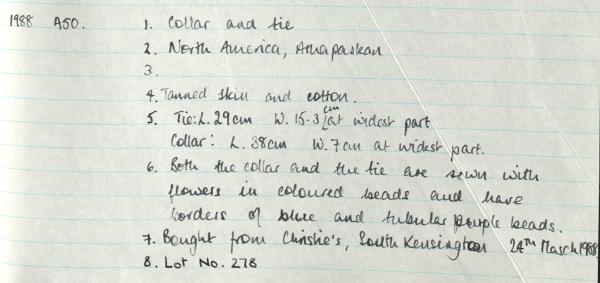 1988 A50. 1. Collar and tie
2. North America, Athapaskan
3.
4. Tanned skin and cotton.
5. Tie: L. 29cm W. 15.3 cm at widest part
Collar: L. 38cm W. 7cm at widest part.
6. Both the collar and the tie are sewn with
flowers in coloured beads and have
borders of blue and tubular purple beads.
7. Bought from Christie's, South Kensington 24TH March 1988
8. Lot No. 278